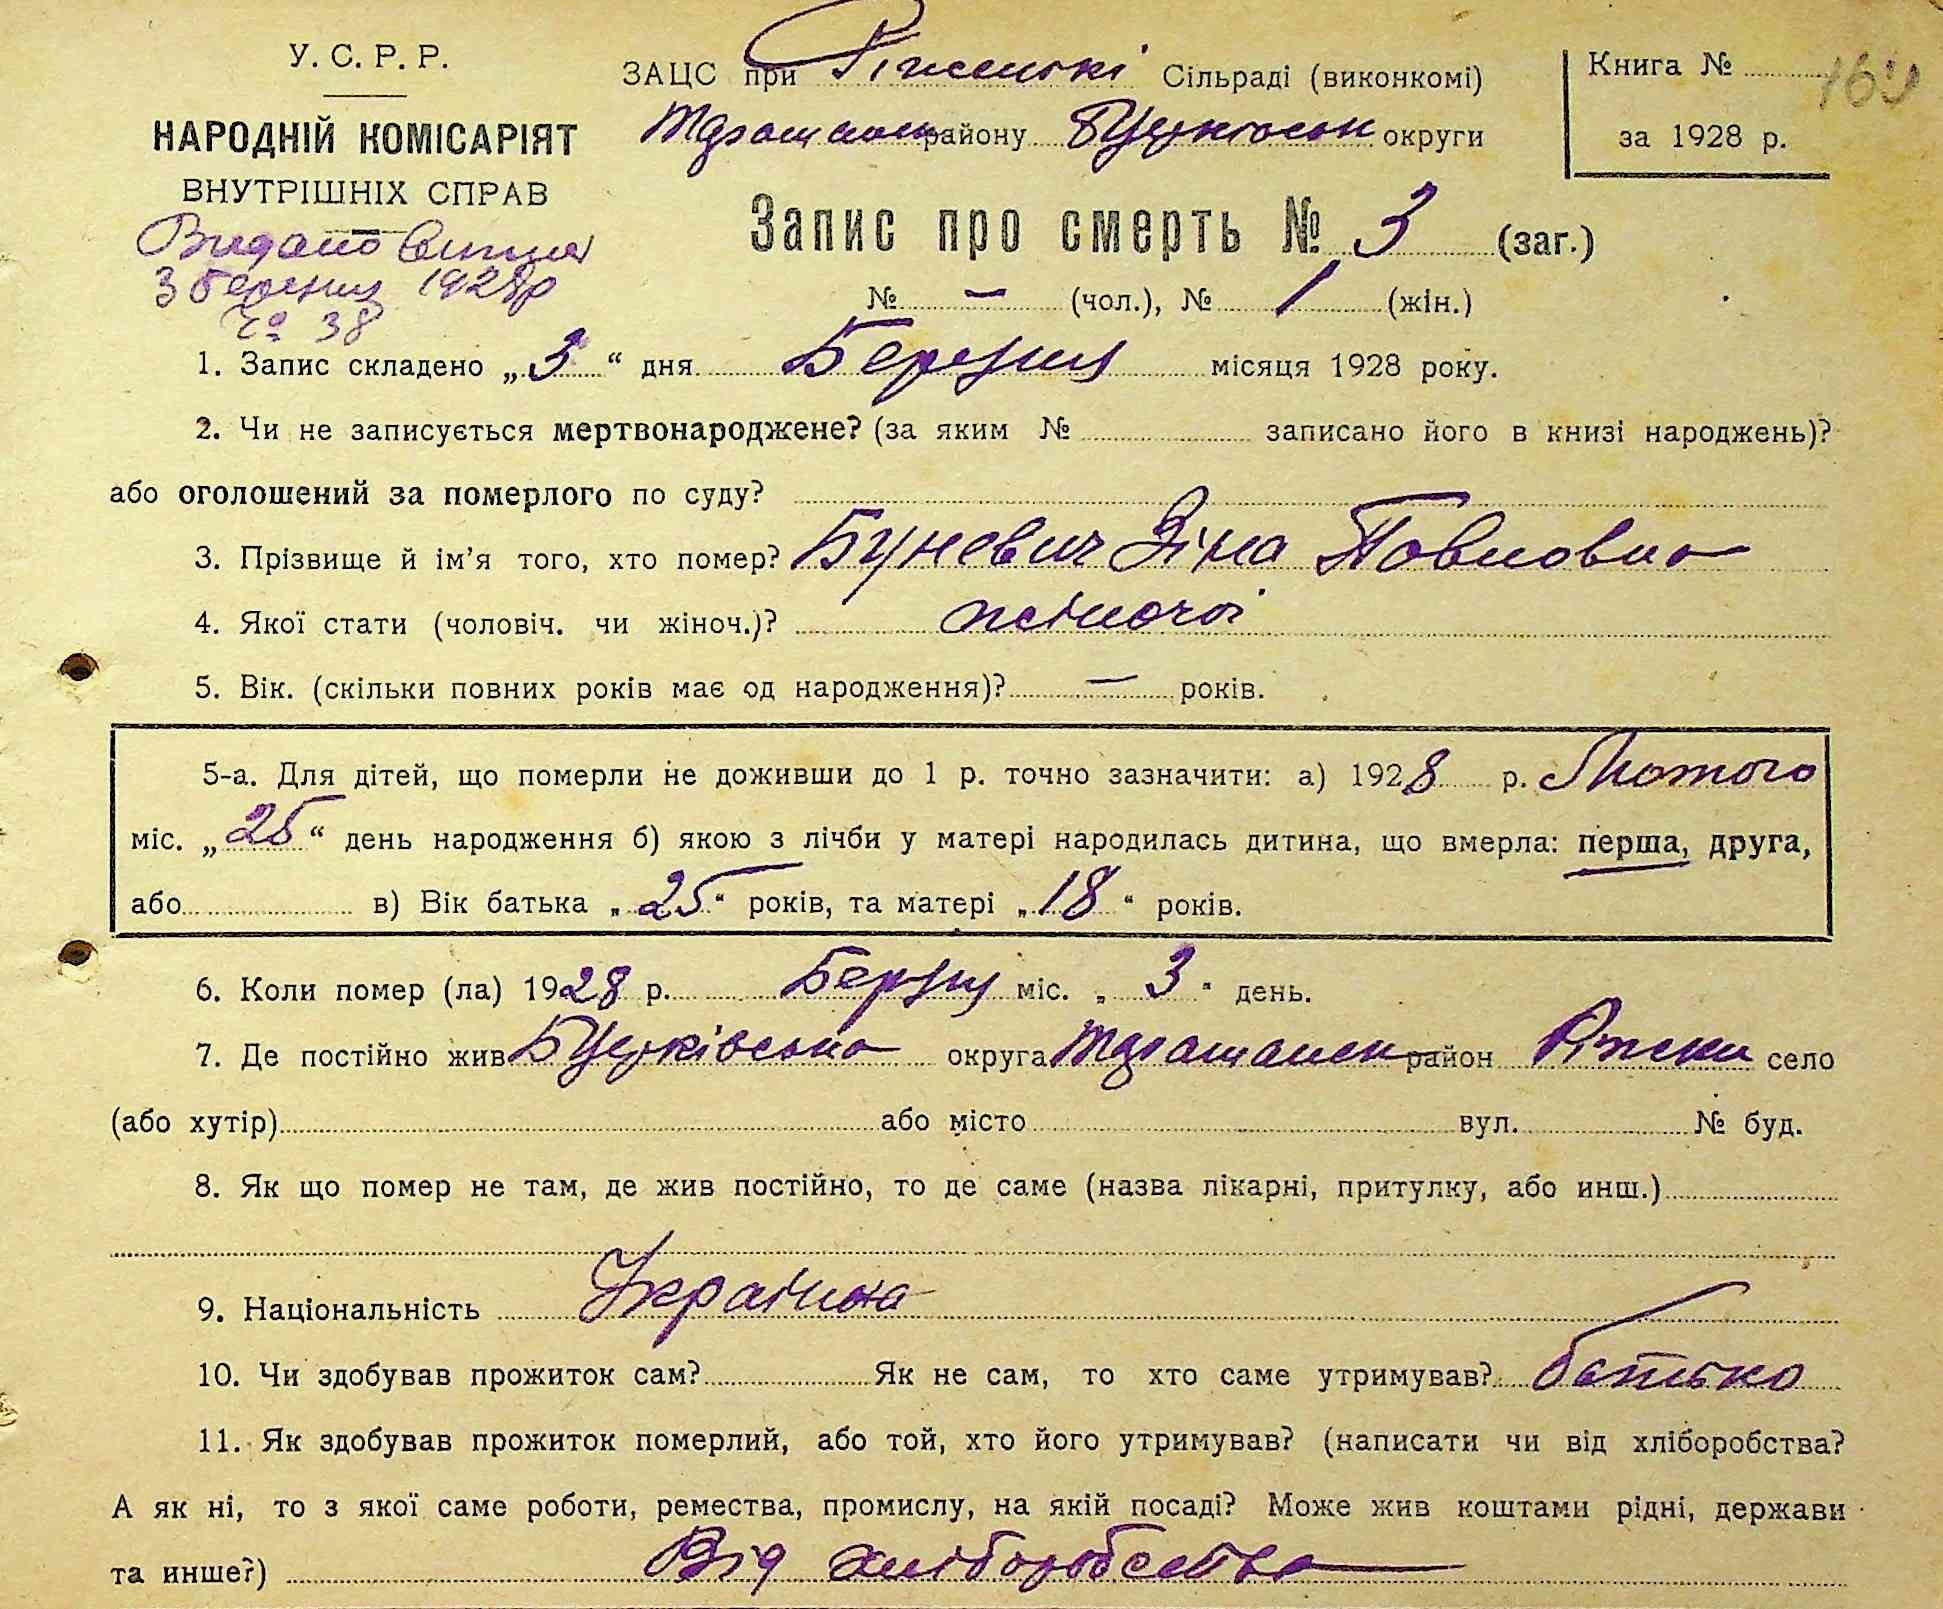 У. С. Р. Р.
НАРОДНІЙ КОМІСАРІЯТ
ВНУТРІШНІХ СПРАВ
Видано
3 березня 1928р
№ 38
ЗАЦС при Сільраді (виконкомі)
району округи
Книга №
за 1928 р.
Запис про смерть № 3 (заг.)
№ – (чол.), № 1 (жін.)
1. Запис складено „3“ дня Березня місяця 1928 року.
2. Чи не записується мертвонароджене? (за яким № записано його в книзі народжень)?
або оголошений за померлого по суду?
3. Прізвище й ім'я того, хто помер? Буневич Зіна Павловна
4. Якої стати (чоловіч. чи жіноч.)? жіночої
5. Вік. (скільки повних років має од народження)? – років.
5-а. Для дітей, що померли не доживши до 1 р. точно зазначити: а) 1928 р. Лютого
міс. „25“ день народження б) якою з лічби у матері народилась дитина, що вмерла: перша, друга,
або в) Вік батька „25“ років, та матері „18“ років.
6. Коли помер (ла) 1928 р. Березня міс. „3“ день.
7. Де постійно жив округа район Ріжки село
(або хутір) або місто вул. № буд.
8. Як що помер не там, де жив постійно, то де саме (назва лікарні, притулку, або инш.)
9. Національність Українка
10. Чи здобував прожиток сам? Як не сам, то хто саме утримував? батько
11. Як здобував прожиток померлий, або той, хто його утримував? (написати чи від хліборобства?
А як ні, то з якої саме роботи, ремества, промислу, на якій посаді? Може жив коштами рідні, держави
та инше?) Від хліборобства